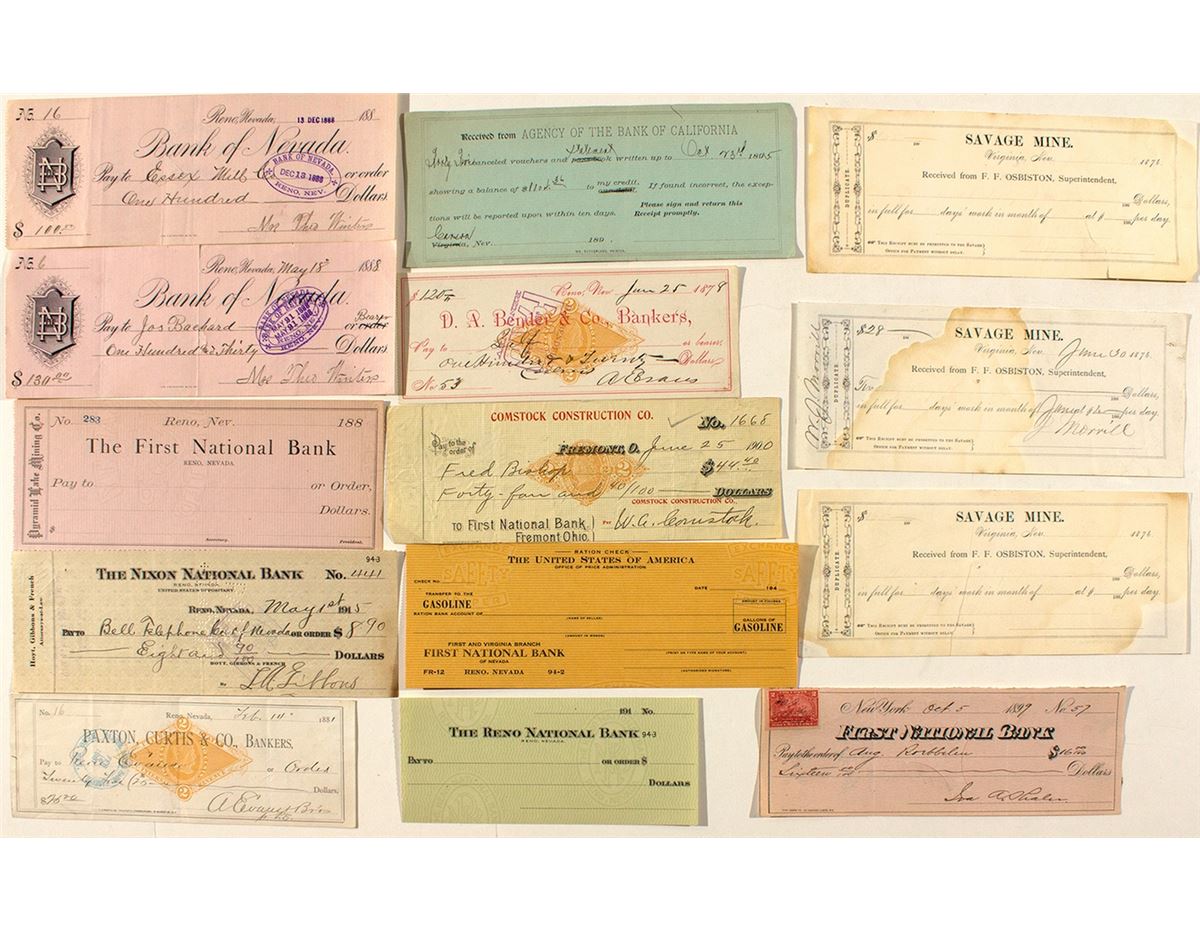 No. 16 Reno, Nevada, 13 DEC 1888 188
Bank of Nevada.
Pay to Essex Mill or order
One Hundred Dollars
$ 100.00 Mrs Theo Winters
BANK OF NEVADA,
DEC 13 1888
RENO, NEV.
No. 6 Reno, Nevada, May 18 1888
Bank of Nevada.
Pay to Jos Bachard or order Bearer
One Hundred & Thirty Dollars.
$ 130.00 Mrs Theo Winters
Pyramid Lake Mining Co.
No. 283 Reno, Nev. 188
The First National Bank
RENO, NEVADA
Pay to or Order,
Dollars.
$
Secretary. President.
Hoyt, Gibbons & French
Attorneys-at-Law
94-3
THE NIXON NATIONAL BANK No. 441
RENO, NEVADA
UNITED STATES DEPOSITORY
RENO, NEVADA, May 1st 1915
PAY TO Bell Telephone Co. of Nevada OR ORDER $ 8.90
Eight and 90/100 DOLLARS
HOYT, GIBBONS & FRENCH
By
No. 16 Reno, Nevada, Feb. 1881
PAXTON, CURTIS & CO., BANKERS,
Pay to or Order
Twenty Dollars.
A Evans
Received from AGENCY OF THE BANK OF CALIFORNIA
canceled vouchers and written up to Oct 23rd 1895
showing a balance of to my credit. If found incorrect, the excep-
tions will be reported upon within ten days. Please sign and return this
Receipt promptly.
Carson
Virginia, Nev. 189 .
$ 120 Reno, Nev Jan 25 1879
D. A. Bender & Co. Bankers,
Pay to Self or bearer
One Hundred & Twenty
No. 53 A Evans
COMSTOCK CONSTRUCTION CO. No. 1668
Pay to the order of FREMONT, O. June 25 1900
Fred Bishop $ 44.40
Forty-four and 40/100 DOLLARS
COMSTOCK CONSTRUCTION CO.,
TO First National Bank, Per W. G. Comstock.
Fremont Ohio.
RATION CHECK
THE UNITED STATES OF AMERICA
OFFICE OF PRICE ADMINISTRATION
CHECK No. DATE 194
TRANSFER TO THE
GASOLINE
RATION BANK ACCOUNT OF
(NAME OF SELLER)
(AMOUNT IN FIGURES)
GALLONS OF
GASOLINE
(AMOUNT IN WORDS)
FIRST AND VIRGINIA BRANCH
FIRST NATIONAL BANK
OF NEVADA
(PRINT OR TYPE NAME OF YOUR ACCOUNT)
FR-12 RENO, NEVADA 94-2 (AUTHORIZED SIGNATURE)
191 No.
THE RENO NATIONAL BANK 94-3
RENO, NEVADA
PAY TO OR ORDER $
DOLLARS
DUPLICATE.
$ SAVAGE MINE.
Virginia, Nev. 1876.
Received from F. F. OSBISTON, Superintendent,
Dollars,
in full for days' work in month of at $ per day.
THIS RECEIPT MUST BE PRESENTED TO THE SAVAGE
OFFICE FOR PAYMENT WITHOUT DELAY.
W J Morrill
DUPLICATE
$28 SAVAGE MINE.
Virginia, Nev. June 30 1876.
Received from F. F. OSBISTON, Superintendent,
Dollars,
in full for days' work in month of per day.
J Morrill
THIS RECEIPT MUST BE PRESENTED TO THE SAVAGE
OFFICE FOR PAYMENT WITHOUT DELAY.
DUPLICATE
$ SAVAGE MINE.
Virginia, Nev. 1876.
Received from F. F. OSBISTON, Superintendent,
Dollars,
in full for days' work in month of at $ per day.
THIS RECEIPT MUST BE PRESENTED TO THE SAVAGE
OFFICE FOR PAYMENT WITHOUT DELAY.
New York Oct 5 1899 No. 57
FIRST NATIONAL BANK
Pay to the order of Aug. $16
Sixteen Dollars